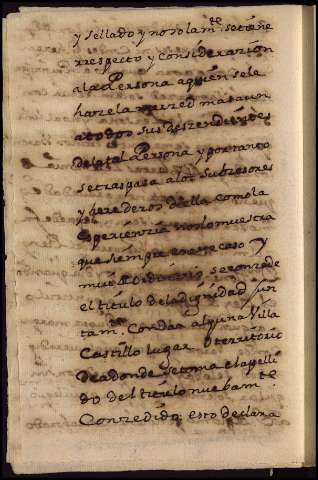 y sellado y no solam.te se tiene
rrespecto y consideraçion
a la Persona a quien se le
haze la merced mas aun
a todos sus desçendientes
de la tal Persona y por tanto
se traspasa a los subcesores
y herederos della como la
esperiencia nos lo muestra
que siempre en este caso y
muy de ordinario se conçede
el titulo de la dignidad jun
tam.te Con daa alguna Villa
Castillo lugar o territorio
de adonde se toma el apelli
do del titulo nuebam.te
Conçedido. esto declara